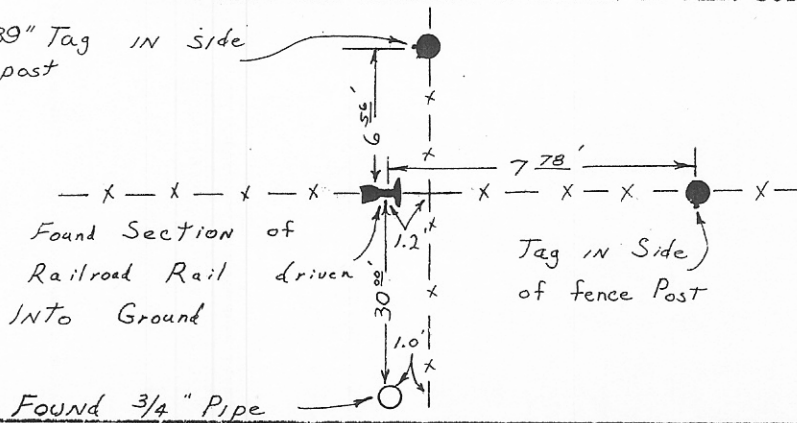 39" Tag IN side
post
6 56'
7 78'
Found Section of
Railroad Rail driven
INTo Ground
1.2'
30 00'
Tag IN Side
of fence Post
1.0'
Found 3/4" Pipe